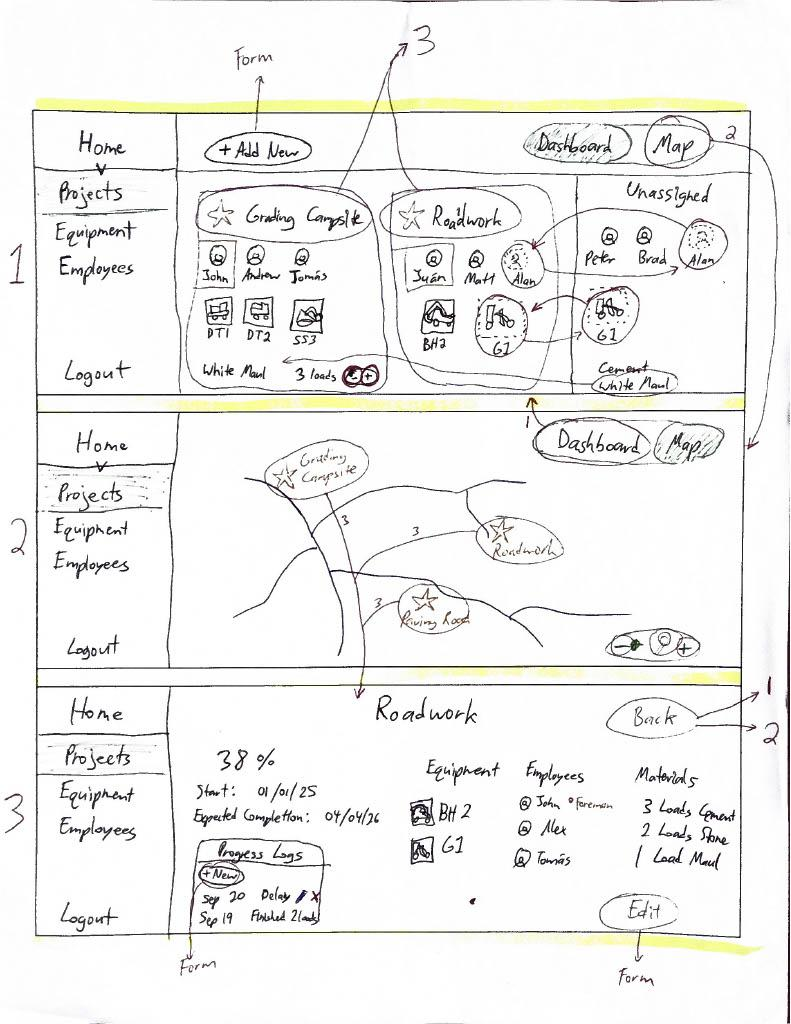 3
Form
Home
+ Add New
Dashboard
Map
2
Projects
Equipment
Employees
Logout
1
Grading Campsite
John Andrew Tomás
DT1 DT2 SS3
White Maul 3 loads - +
Roadwork
Juán Matt Alan
BH2 G1
Unassigned
Peter Brad Alan
G1
Cement
White Maul
1
Home
Dashboard
Map
Projects
Equipment
Employees
Logout
2
Grading
Campsite
3
3
Roadwork
3
Paving Road
- +
Home
Roadwork
Back
1
2
Projects
Equipment
Employees
Logout
3
38 %
Start: 01/01/25
Expected Completion: 04/04/26
Progress Logs
+ New
Sep 20 Delay x
Sep 19 Finished 2 loads
Form
Equipment
BH 2
G1
Employees
John • Foreman
Alex
Tomás
Materials
3 Loads Cement
2 Loads Stone
1 Load Maul
Edit
Form